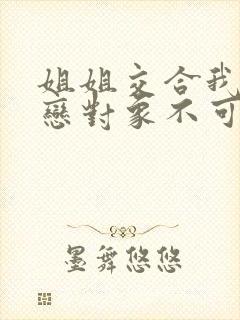 姐姐交合我
戀對象不可
墨舞悠悠